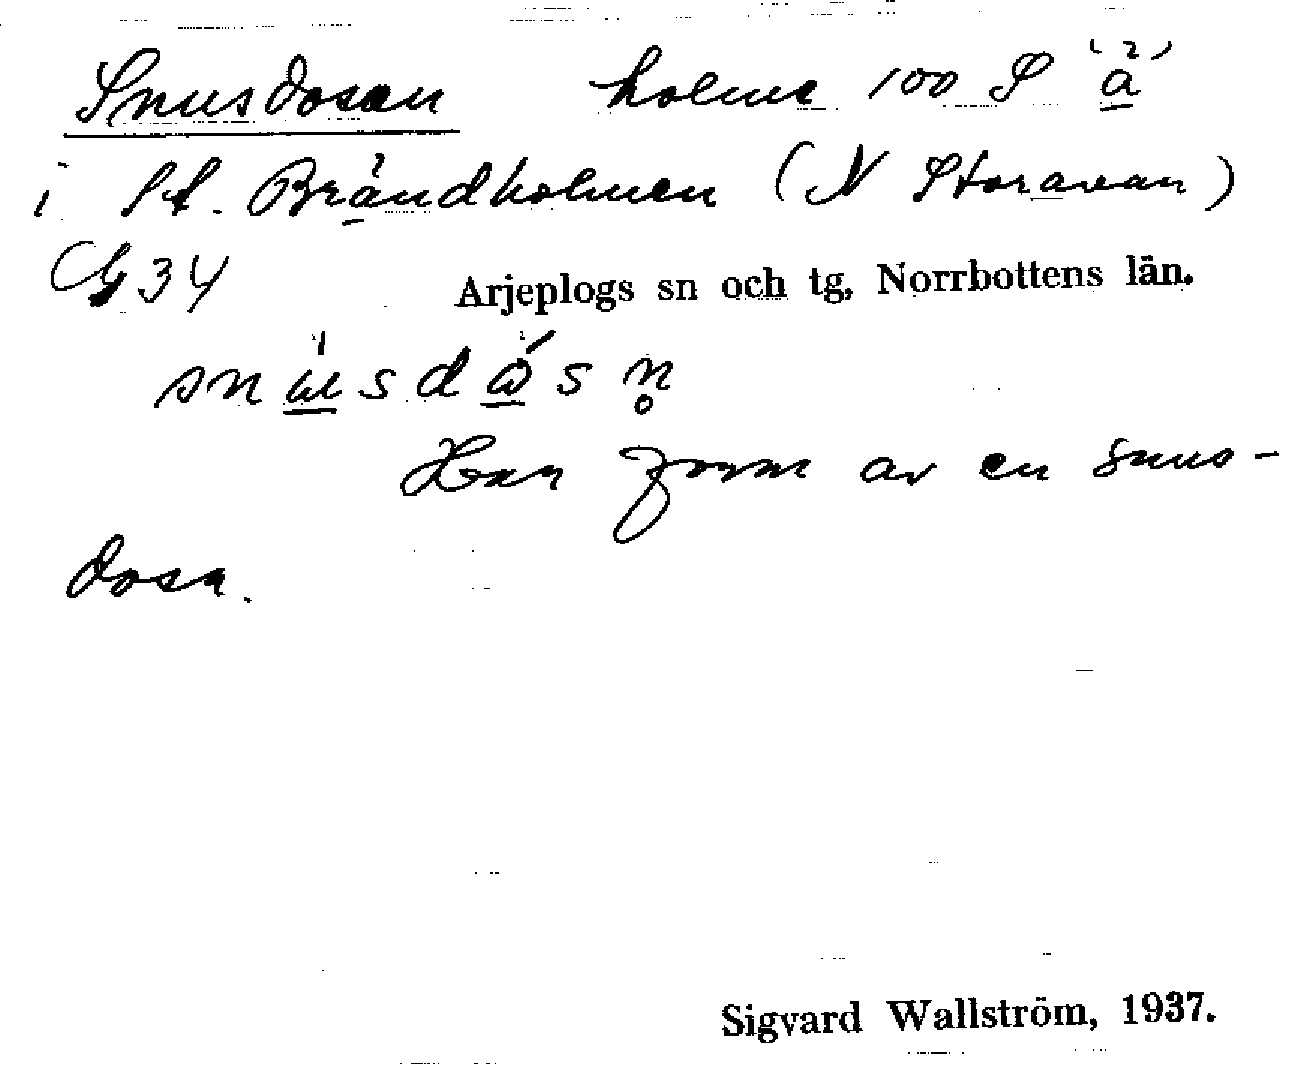 Snusdosan holme 100 S å
i St. Brändholmen (N Storavan)
G34 Arjeplogs sn och tg, Norrbottens län.
Har form av en snus-
dosa.
Sigvard Wallström, 1937.